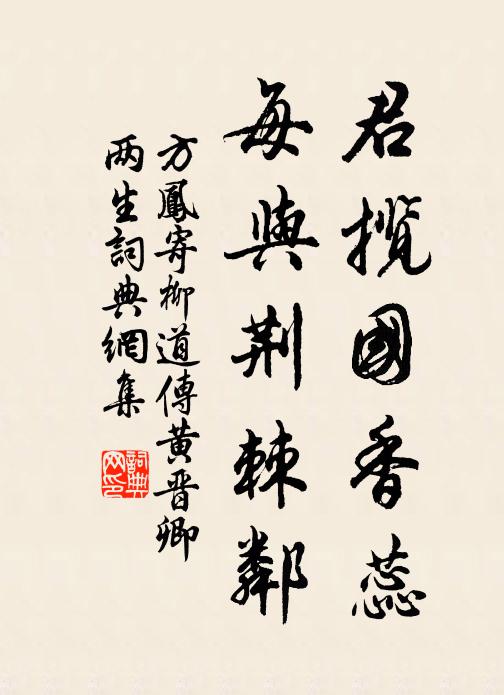 君攬國香蕊
每與荆棘鄰
方鳳寄柳道傳黄晋卿
两生詞典網集
詞典网印